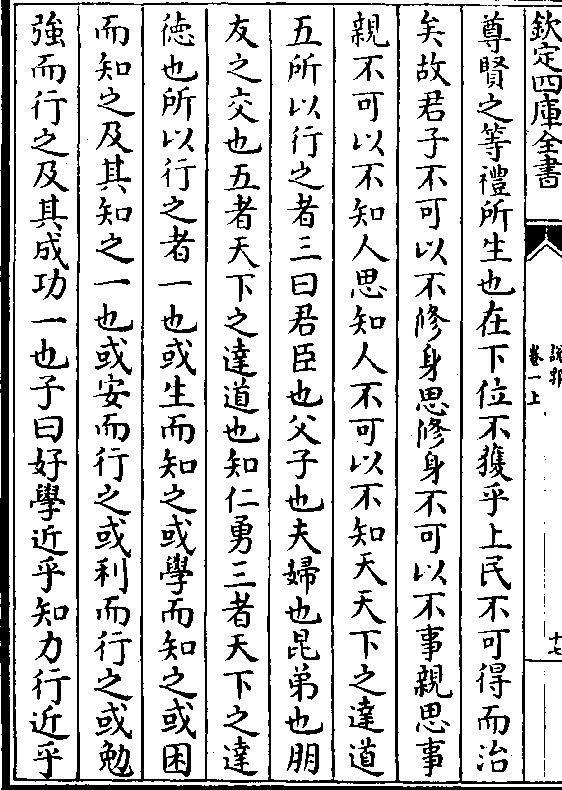 欽定四庫全書
說郛
卷一上
十七
尊賢之等禮所生也在下位不獲乎上民不可得而治
矣故君子不可以不修身思修身不可以不事親思事
親不可以不知人思知人不可以不知天天下之達道
五所以行之者三曰君臣也父子也夫婦也昆弟也朋
友之交也五者天下之達道也知仁勇三者天下之達
徳也所以行之者一也或生而知之或學而知之或困
而知之及其知之一也或安而行之或利而行之或勉
強而行之及其成功一也子曰好學近乎知力行近乎